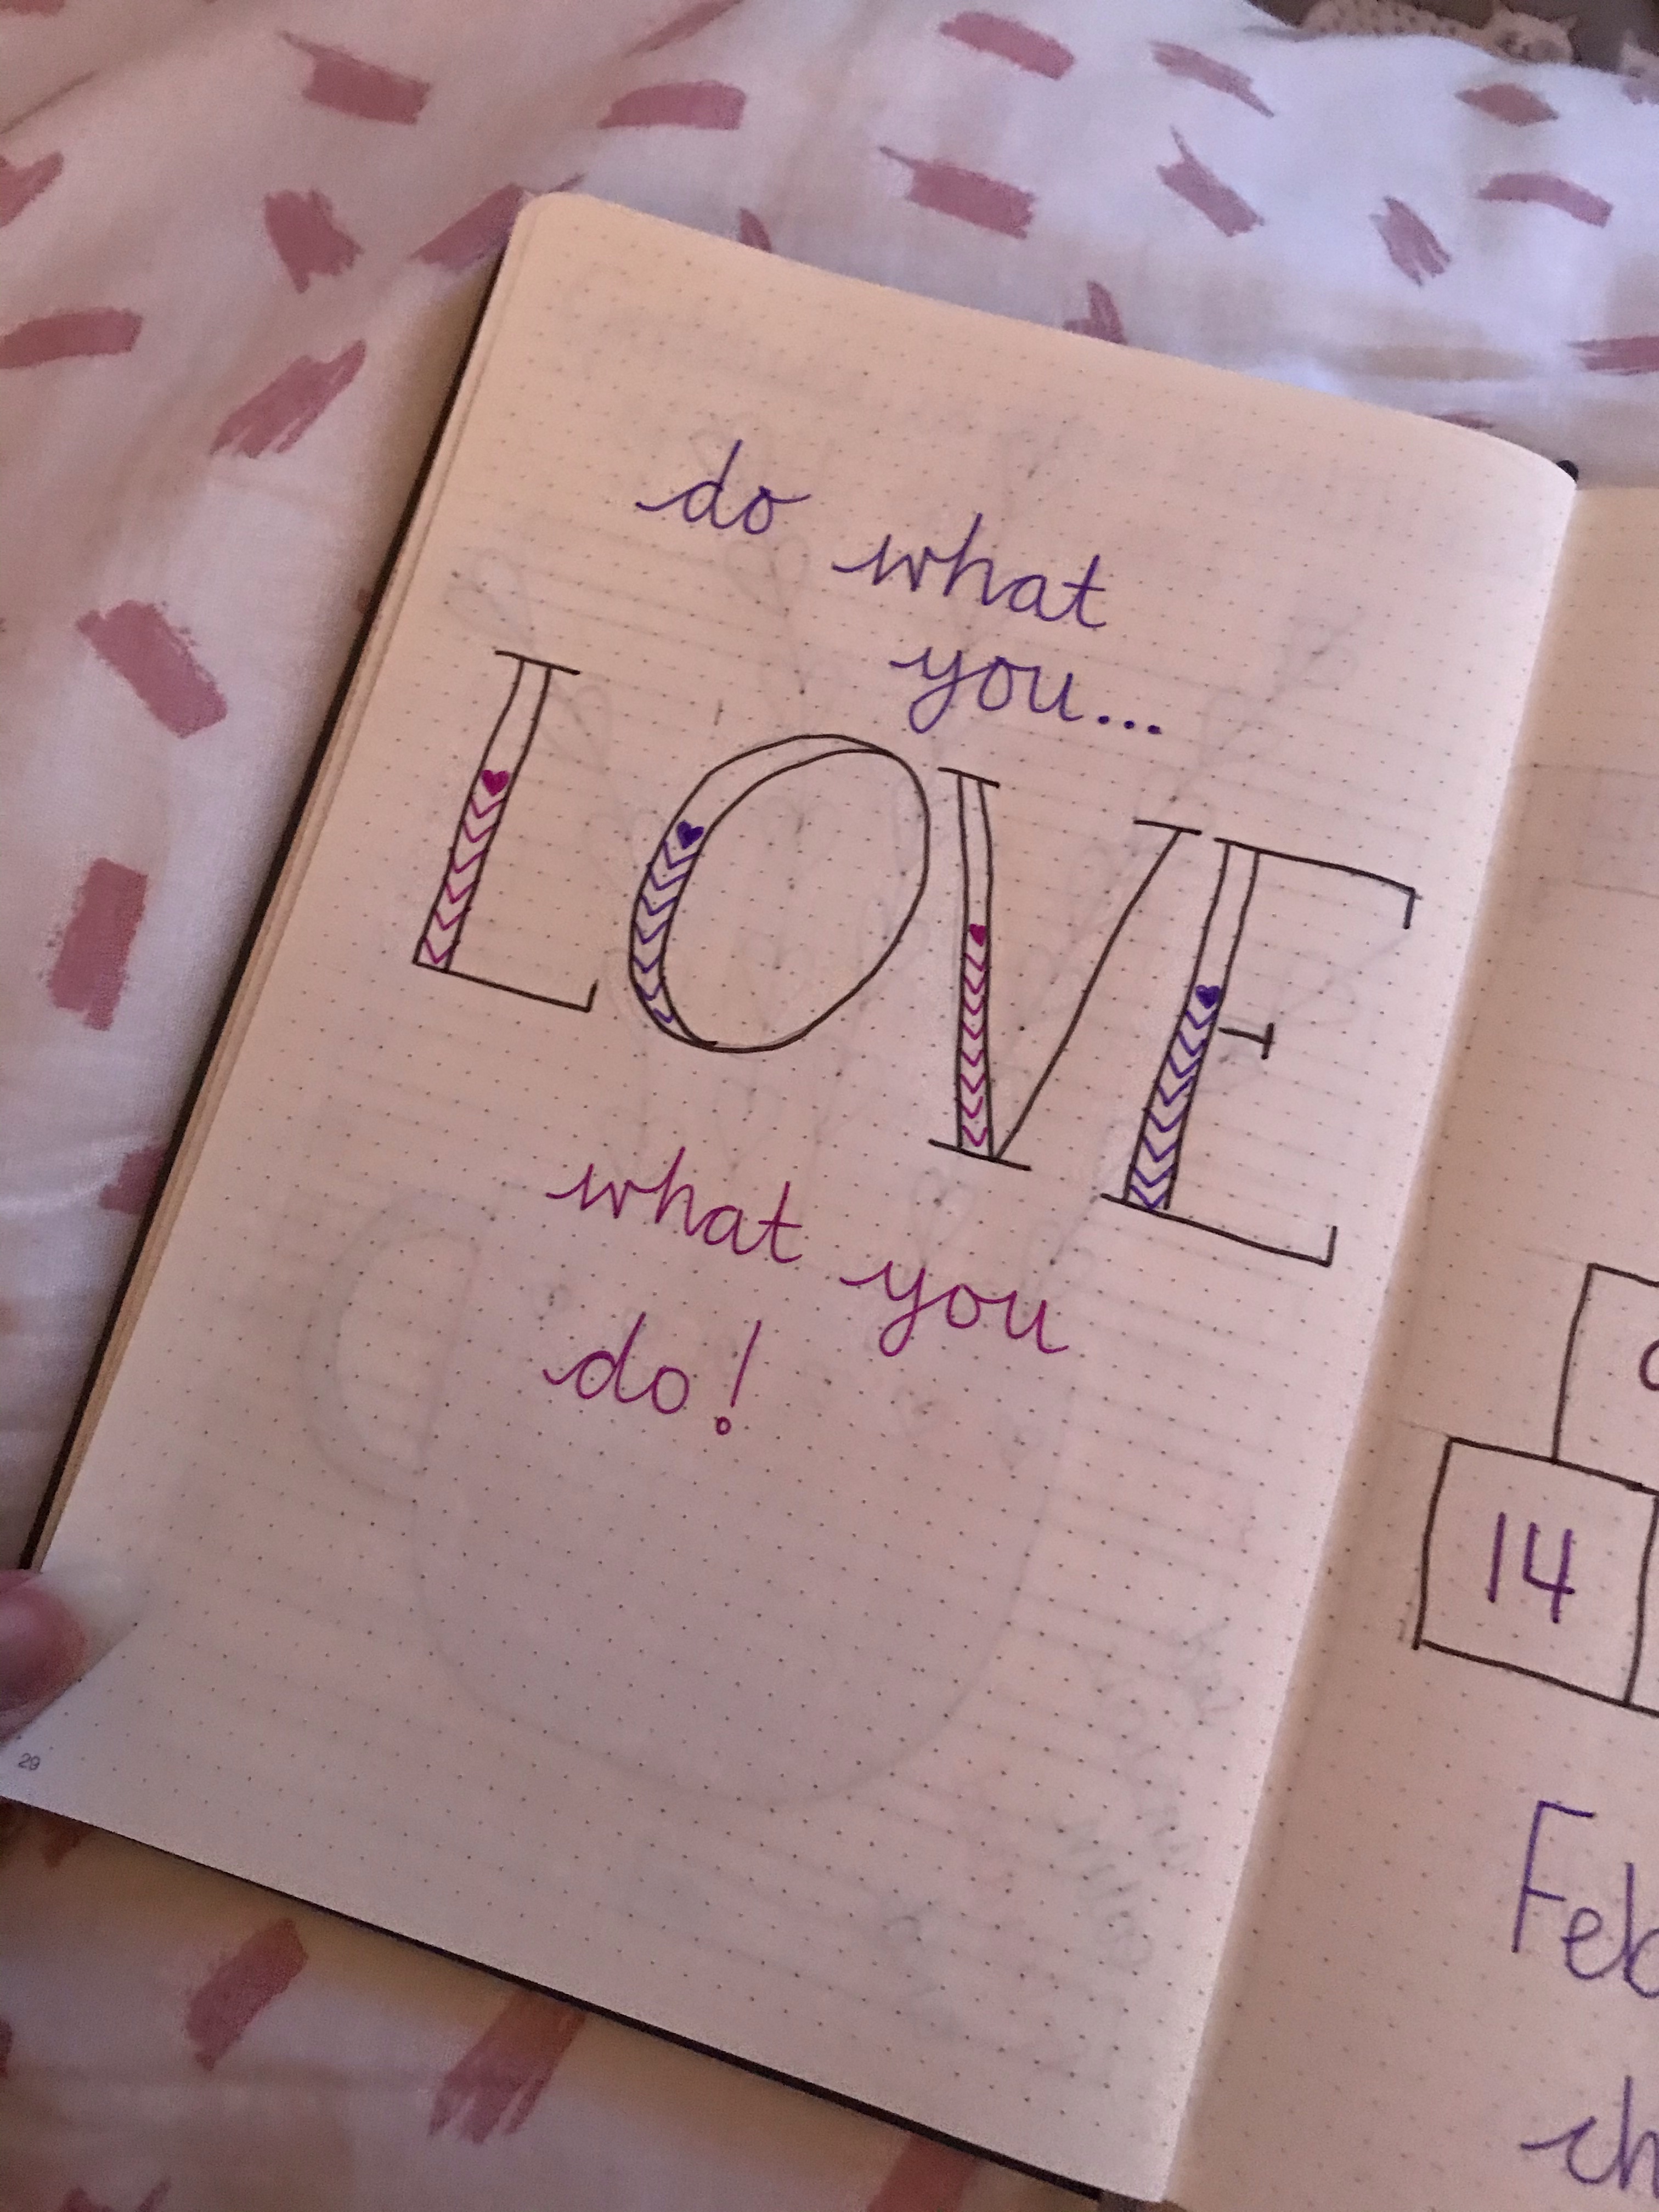 do what
you...
LOVE
what you
do!
29
14